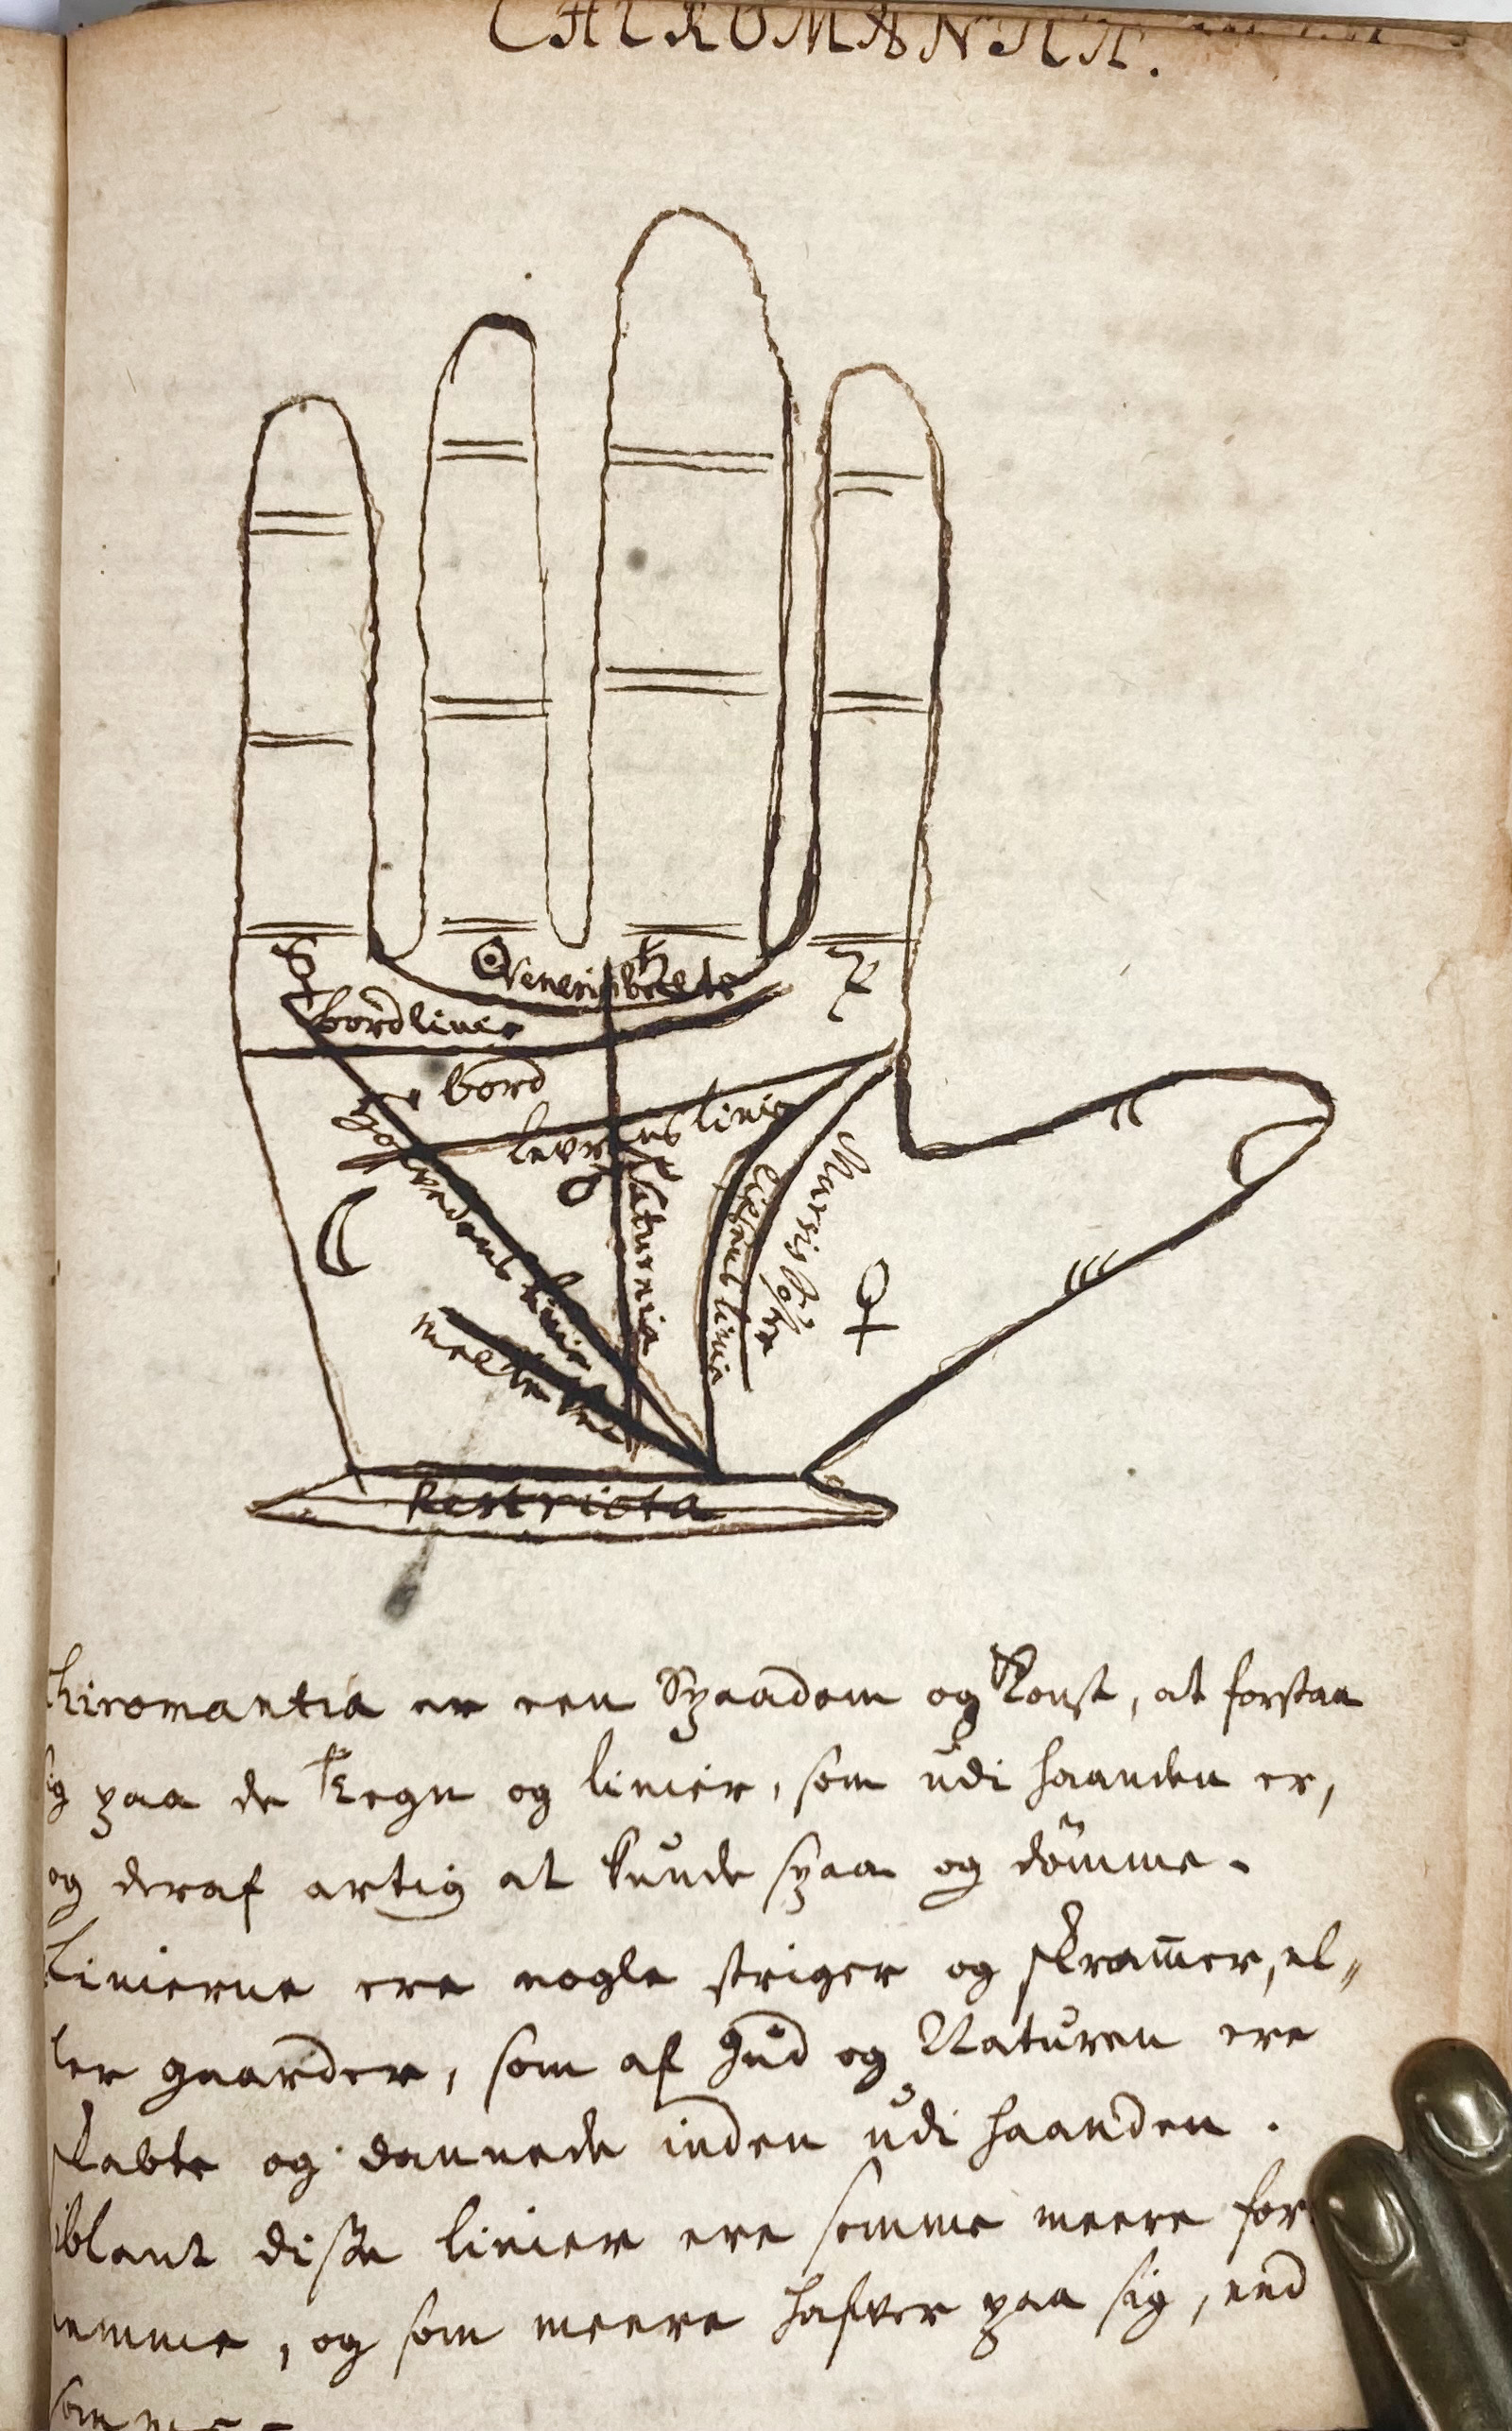 CHIROMANTIA.
☿
☉
Veneris belte
♄
♃
bordlinie
bord
Hofvedens linie
levrens linie
♂
Saturnia
lifsens linie
Marsis
☾
♀
Melke
Restricta
hiromantia er een Spaadom og Konst, at forstaa
ig paa de Tegn og linier, som udi haanden er,
og deraf artig at kunde spaa og dömme.
Linierne ere nogle striger og skram̅er, el„
ler gaarder, som af Gud og Naturen ere
skabte og dannede inden udi haanden.
iblant disse linier ere somme meere for
nemme, og som meere hafver paa sig, end
somme